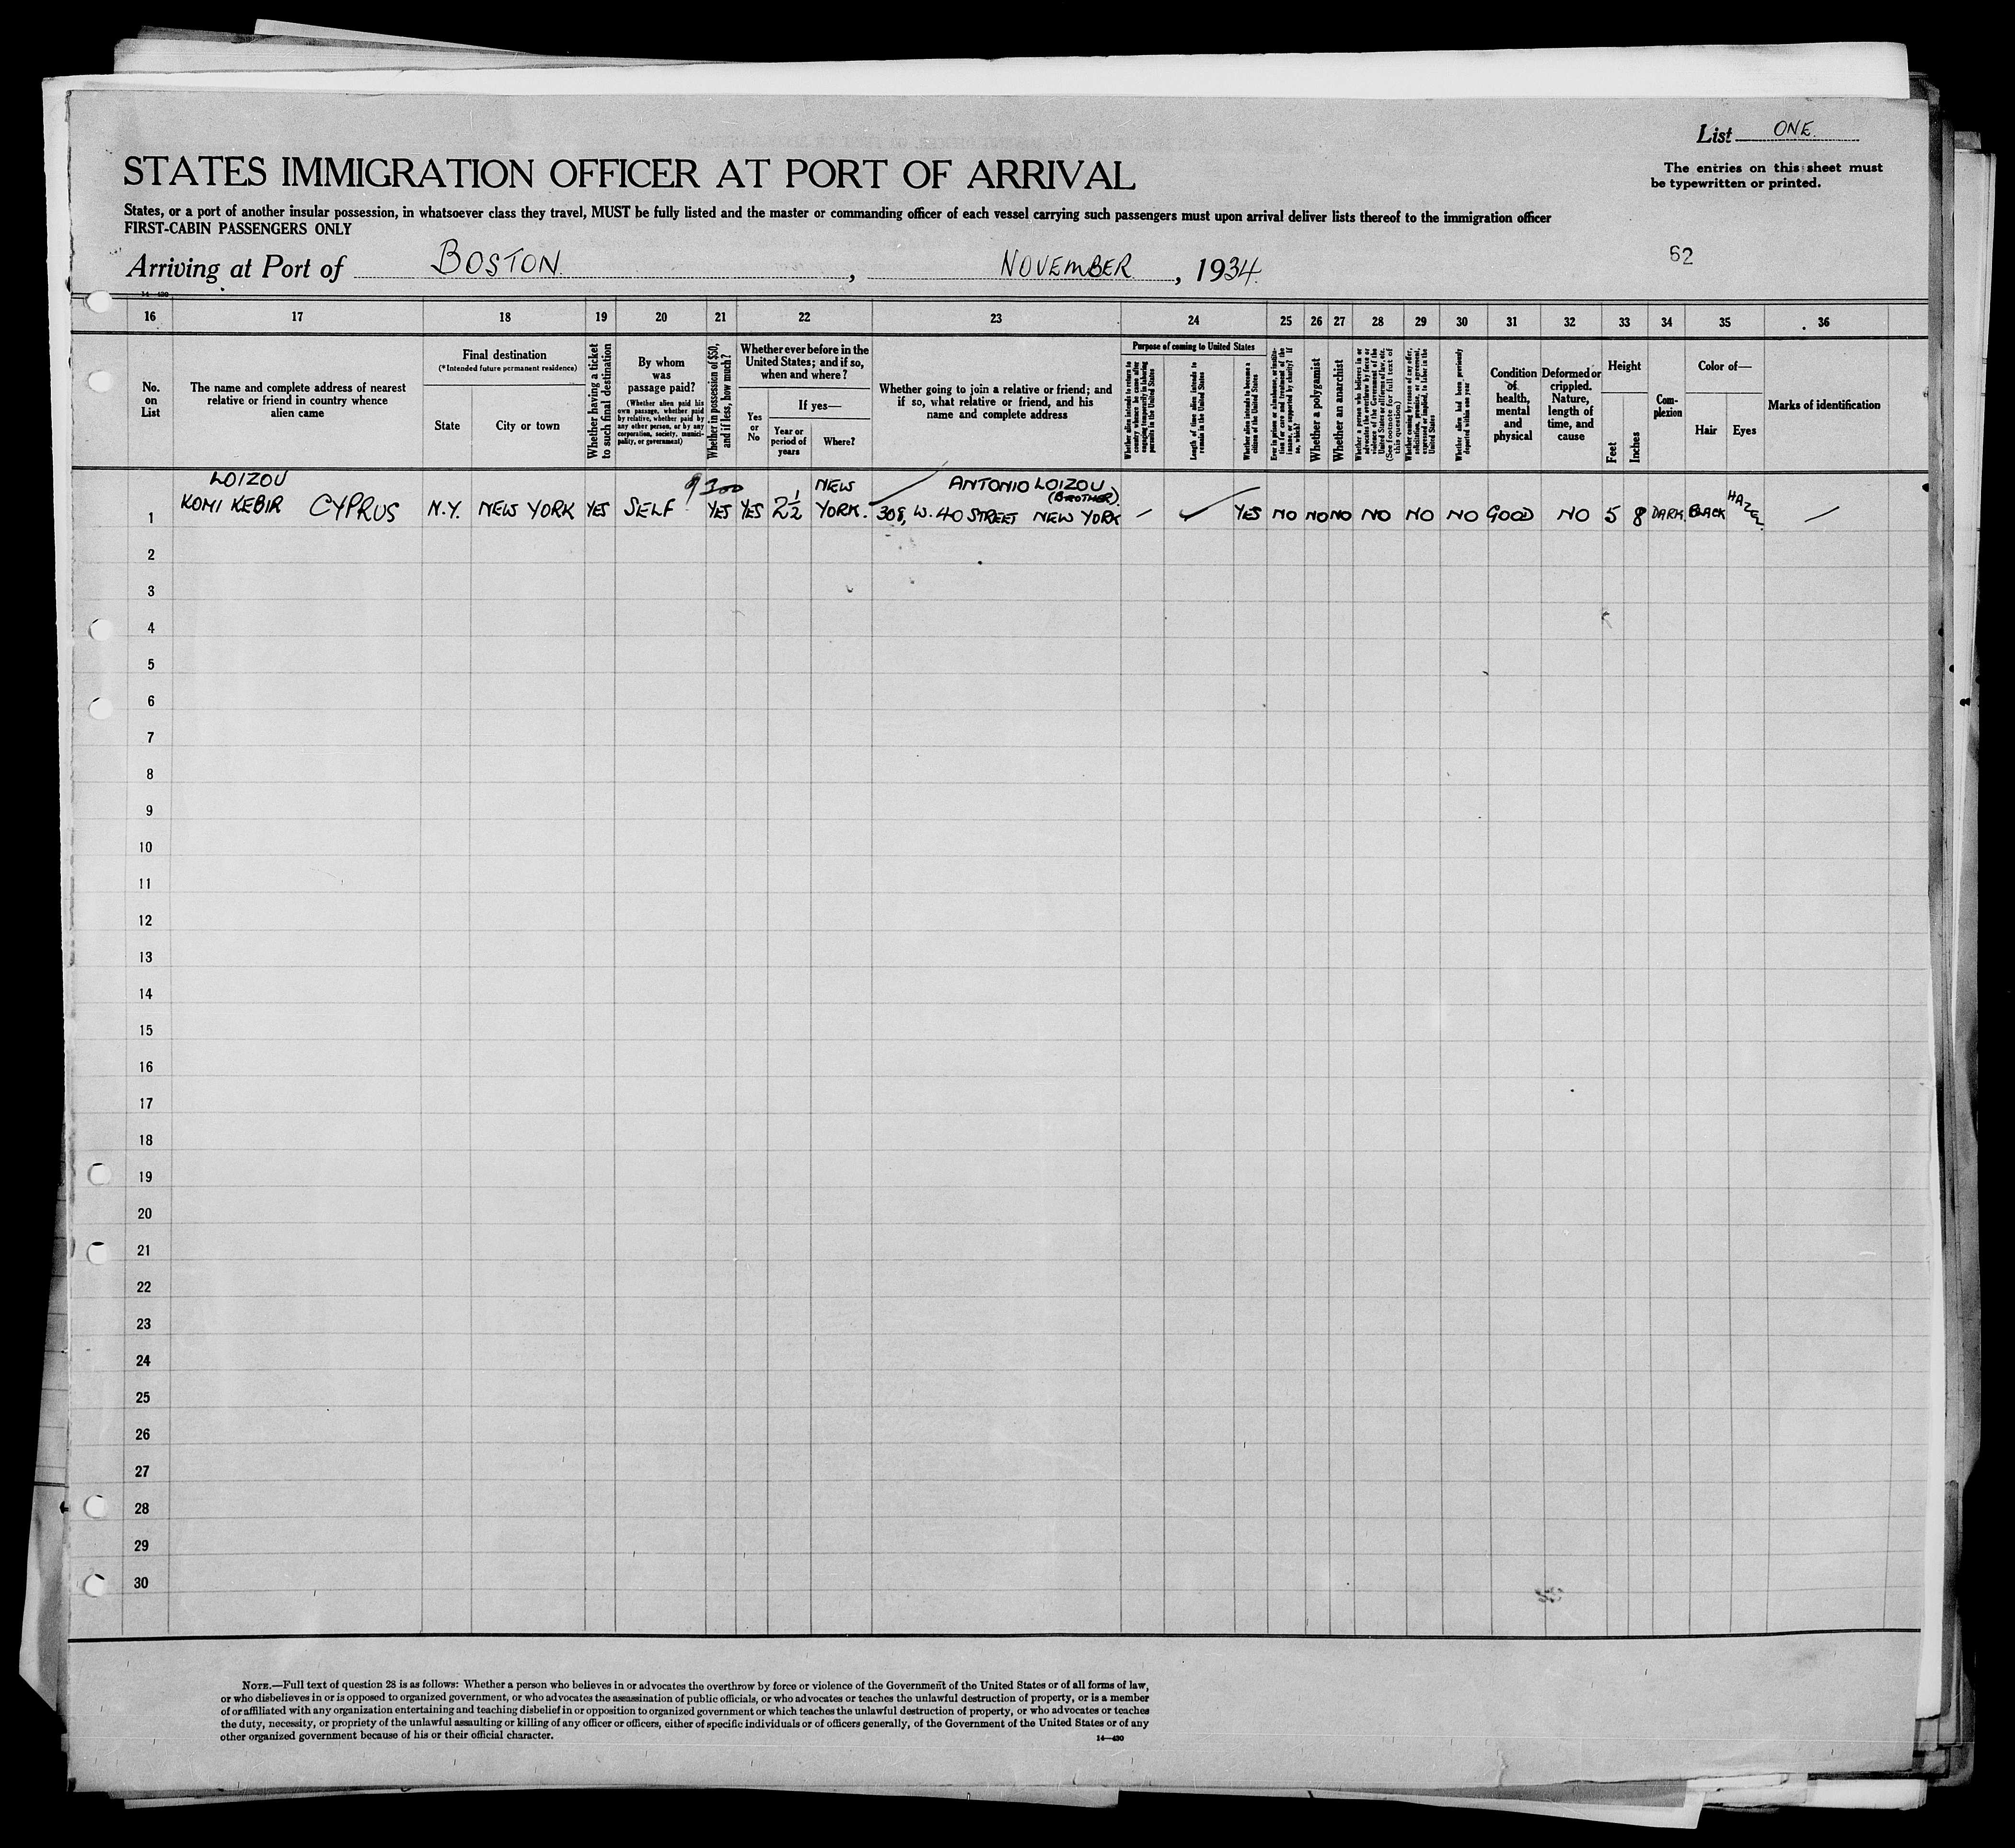 List ONE.
STATES IMMIGRATION OFFICER AT PORT OF ARRIVAL
The entries on this sheet must
be typewritten or printed.
States, or a port of another insular possession, in whatsoever class they travel, MUST be fully listed and the master or commanding officer of each vessel carrying such passengers must upon arrival deliver lists thereof to the immigration officer
FIRST-CABIN PASSENGERS ONLY
Arriving at Port of BOSTON, NOVEMBER, 1934.
62
14—430
16 17 18 19 20 21 22 23 24 25 26 27 28 29 30 31 32 33 34 35 36
No. on List
The name and complete address of nearest relative or friend in country whence alien came
Final destination
(*Intended future permanent residence)
State
City or town
Whether having a ticket to such final destination
By whom was passage paid?
(Whether alien paid his own passage, whether paid by relative, whether paid by any other person, or by any corporation, society, municipality, or government)
Whether in possession of $50, and if less, how much?
Whether ever before in the United States; and if so, when and where?
Yes or No
If yes—
Year or period of years
Where?
Whether going to join a relative or friend; and if so, what relative or friend, and his name and complete address
Purpose of coming to United States
Whether alien intends to return to country whence he came after engaging temporarily in laboring pursuits in the United States
Length of time alien intends to remain in the United States
Whether alien intends to become a citizen of the United States
Ever in prison or almshouse, or institution for care and treatment of the insane, or supported by charity? If so, which?
Whether a polygamist
Whether an anarchist
Whether a person who believes in or advocates the overthrow by force or violence of the Government of the United States or all forms of law, etc. (See footnote for full text of this question)
Whether coming by reason of any offer, solicitation, promise, or agreement, expressed or implied, to labor in the United States
Whether alien had been previously deported within one year
Condition of health, mental and physical
Deformed or crippled. Nature, length of time, and cause
Height
Feet
Inches
Complexion
Color of—
Hair
Eyes
Marks of identification
LOIZOU
KOMI KEBIR CYPRUS
N.Y. NEW YORK YES SELF 300 YES YES 2½ NEW YORK.
ANTONIO LOIZOU
(BROTHER)
308, W. 40 STREET NEW YORK
— ✓ YES NO NO NO NO NO NO GOOD NO 5 8 DARK BLACK HAZEL. —
1
2
3
4
5
6
7
8
9
10
11
12
13
14
15
16
17
18
19
20
21
22
23
24
25
26
27
28
29
30
NOTE.—Full text of question 28 is as follows: Whether a person who believes in or advocates the overthrow by force or violence of the Government of the United States or of all forms of law,
or who disbelieves in or is opposed to organized government, or who advocates the assassination of public officials, or who advocates or teaches the unlawful destruction of property, or is a member
of or affiliated with any organization entertaining and teaching disbelief in or opposition to organized government or which teaches the unlawful destruction of property, or who advocates or teaches
the duty, necessity, or propriety of the unlawful assaulting or killing of any officer or officers, either of specific individuals or of officers generally, of the Government of the United States or of any
other organized government because of his or their official character.
14—430